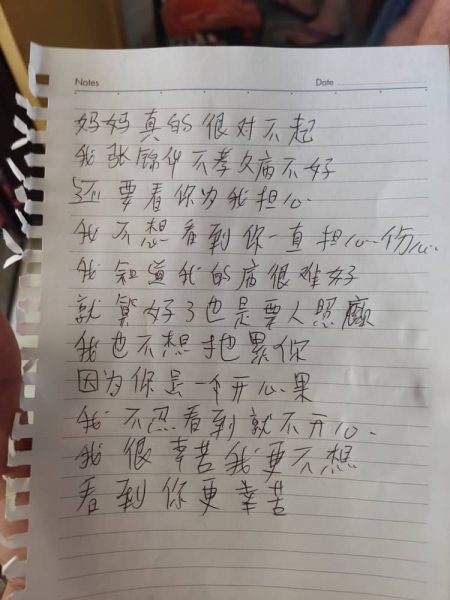 Notes
Date
妈妈真的很对不起
我张锦华不孝久病不好
还要看你为我担心
我不想看到你一直担心伤心
我知道我的病很难好
就算好了也是要人照顾
我也不想拖累你
因为你是一个开心果
我不忍看到就不开心
我很幸苦我更不想
看到你更幸苦